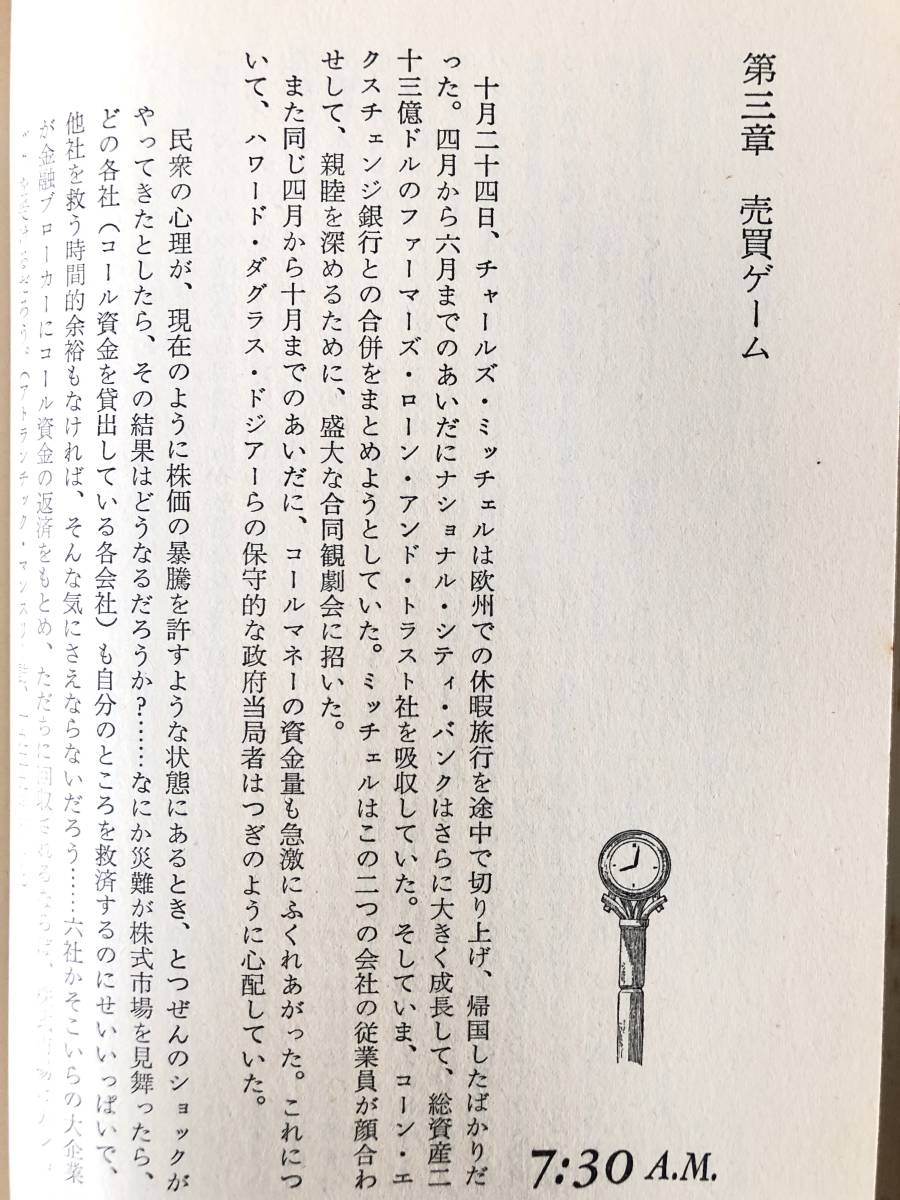 第三章　売買ゲーム
7:30 A.M.
　十月二十四日、チャールズ・ミッチェルは欧州での休暇旅行を途中で切り上げ、帰国したばかりだ
った。四月から六月までのあいだにナショナル・シティ・バンクはさらに大きく成長して、総資産二
十三億ドルのファーマーズ・ローン・アンド・トラスト社を吸収していた。そしていま、コーン・エ
クスチェンジ銀行との合併をまとめようとしていた。ミッチェルはこの二つの会社の従業員が顔合わ
せして、親睦を深めるために、盛大な合同観劇会に招いた。
　また同じ四月から十月までのあいだに、コールマネーの資金量も急激にふくれあがった。これにつ
いて、ハワード・ダグラス・ドジアーらの保守的な政府当局者はつぎのように心配していた。
　民衆の心理が、現在のように株価の暴騰を許すような状態にあるとき、とつぜんのショックが
やってきたとしたら、その結果はどうなるだろうか?……なにか災難が株式市場を見舞ったら、
どの各社（コール資金を貸出している各会社）も自分のところを救済するのにせいいっぱいで、
他社を救う時間的余裕もなければ、そんな気にさえならないだろう……六社かそこいらの大企業
が金融ブローカーにコール資金の返済をもとめ、ただちに回収されるならば、